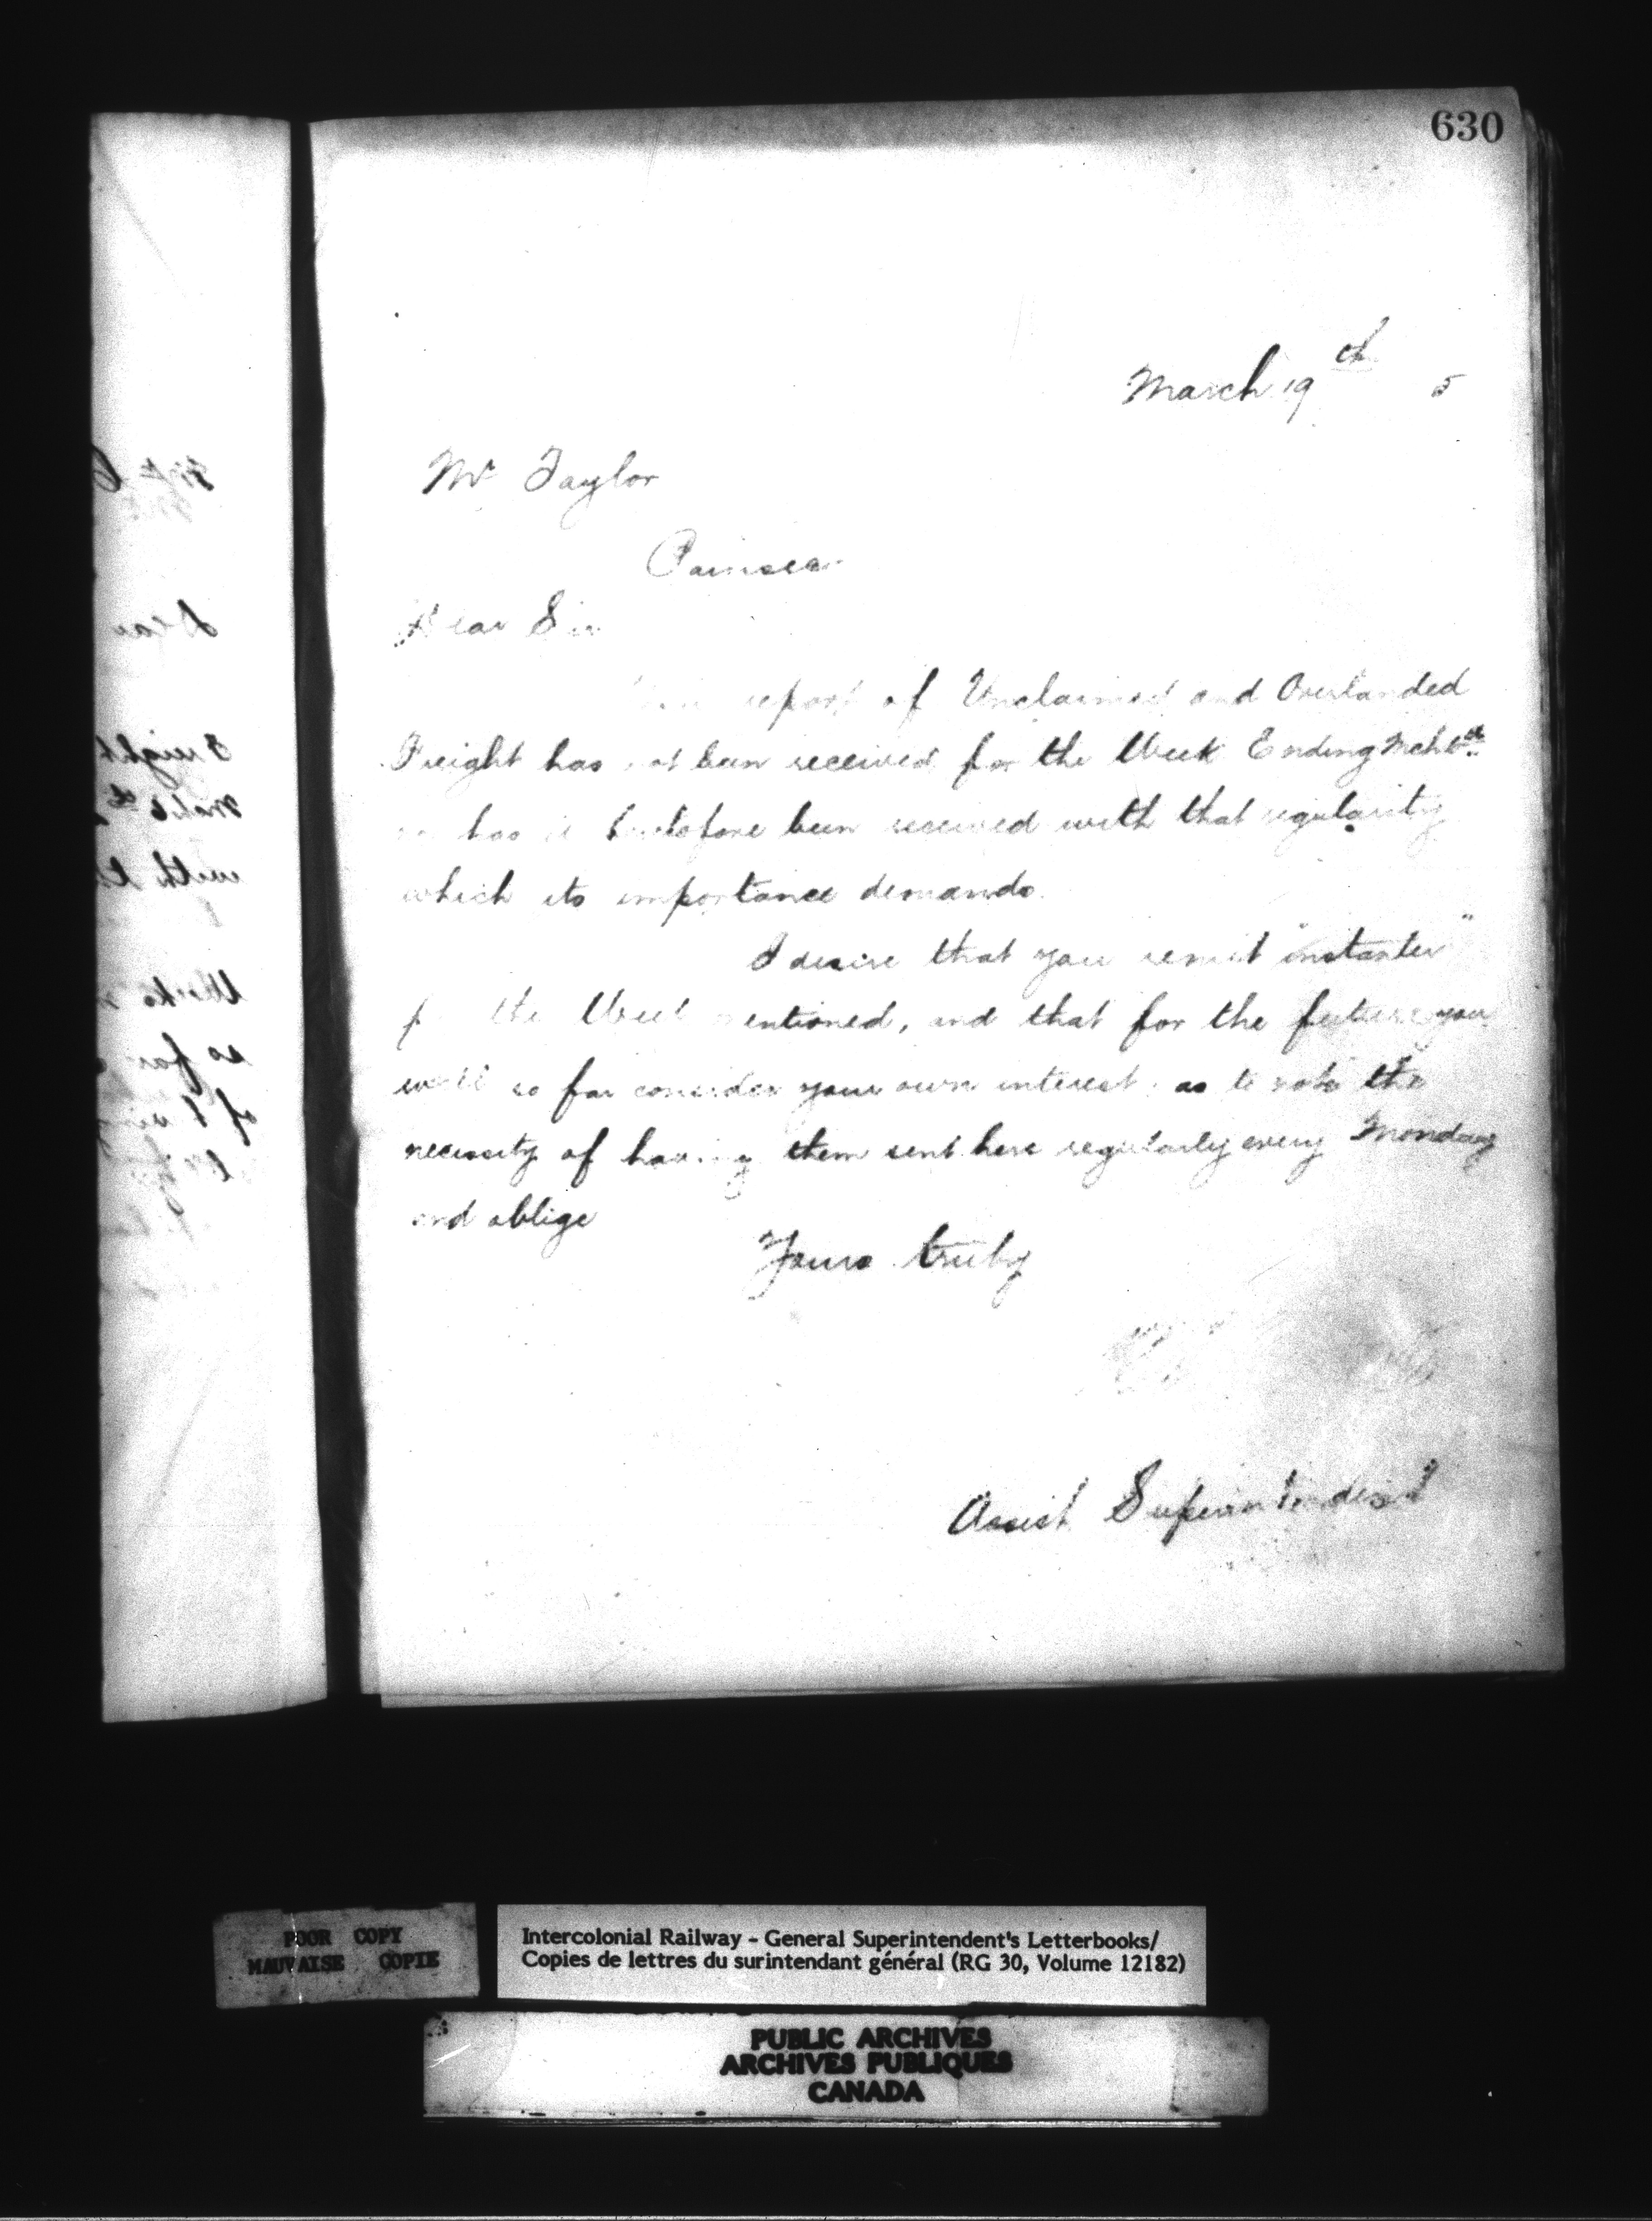 630
March 19th 5
Mr Taylor
Painsec
Dear Sir
report of Unclaimed and Overlanded
Freight has not been received for the Week Ending Mch 6th
has it heretofore been received with that regularity
which its importance demands.
I desire that you remit "instanter"
for the Week mentioned, and that for the future you
will so far consider your own interest as to note the
necessity of having them sent here regularly every Monday
and oblige
Yours truly
Assist Superintendent
POOR COPY
MAUVAISE COPIE
Intercolonial Railway - General Superintendent's Letterbooks/
Copies de lettres du surintendant général (RG 30, Volume 12182)
PUBLIC ARCHIVES
ARCHIVES PUBLIQUES
CANADA